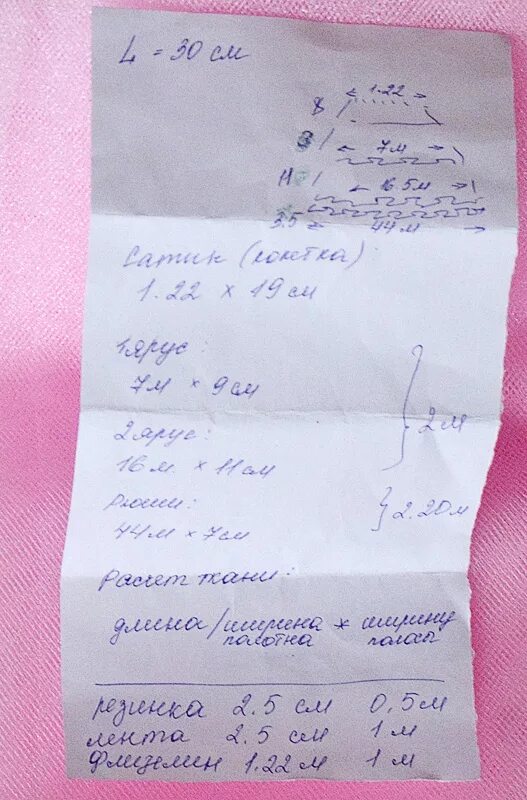 L = 30 см
1.22
8
7м
11
16.5м
3.5
44 м
Сатин (кокетка)
1.22 × 19 см
1 ярус:
7м × 9 см
2 м
2 ярус:
16 м. × 11 см
Рюши:
2.20 м
44 м × 7 см
Расчет ткани:
длина/ширина полотна * ширину полосы
резинка 2.5 см 0,5 м
лента 2.5 см 1 м
Флизелин 1.22 м 1 м